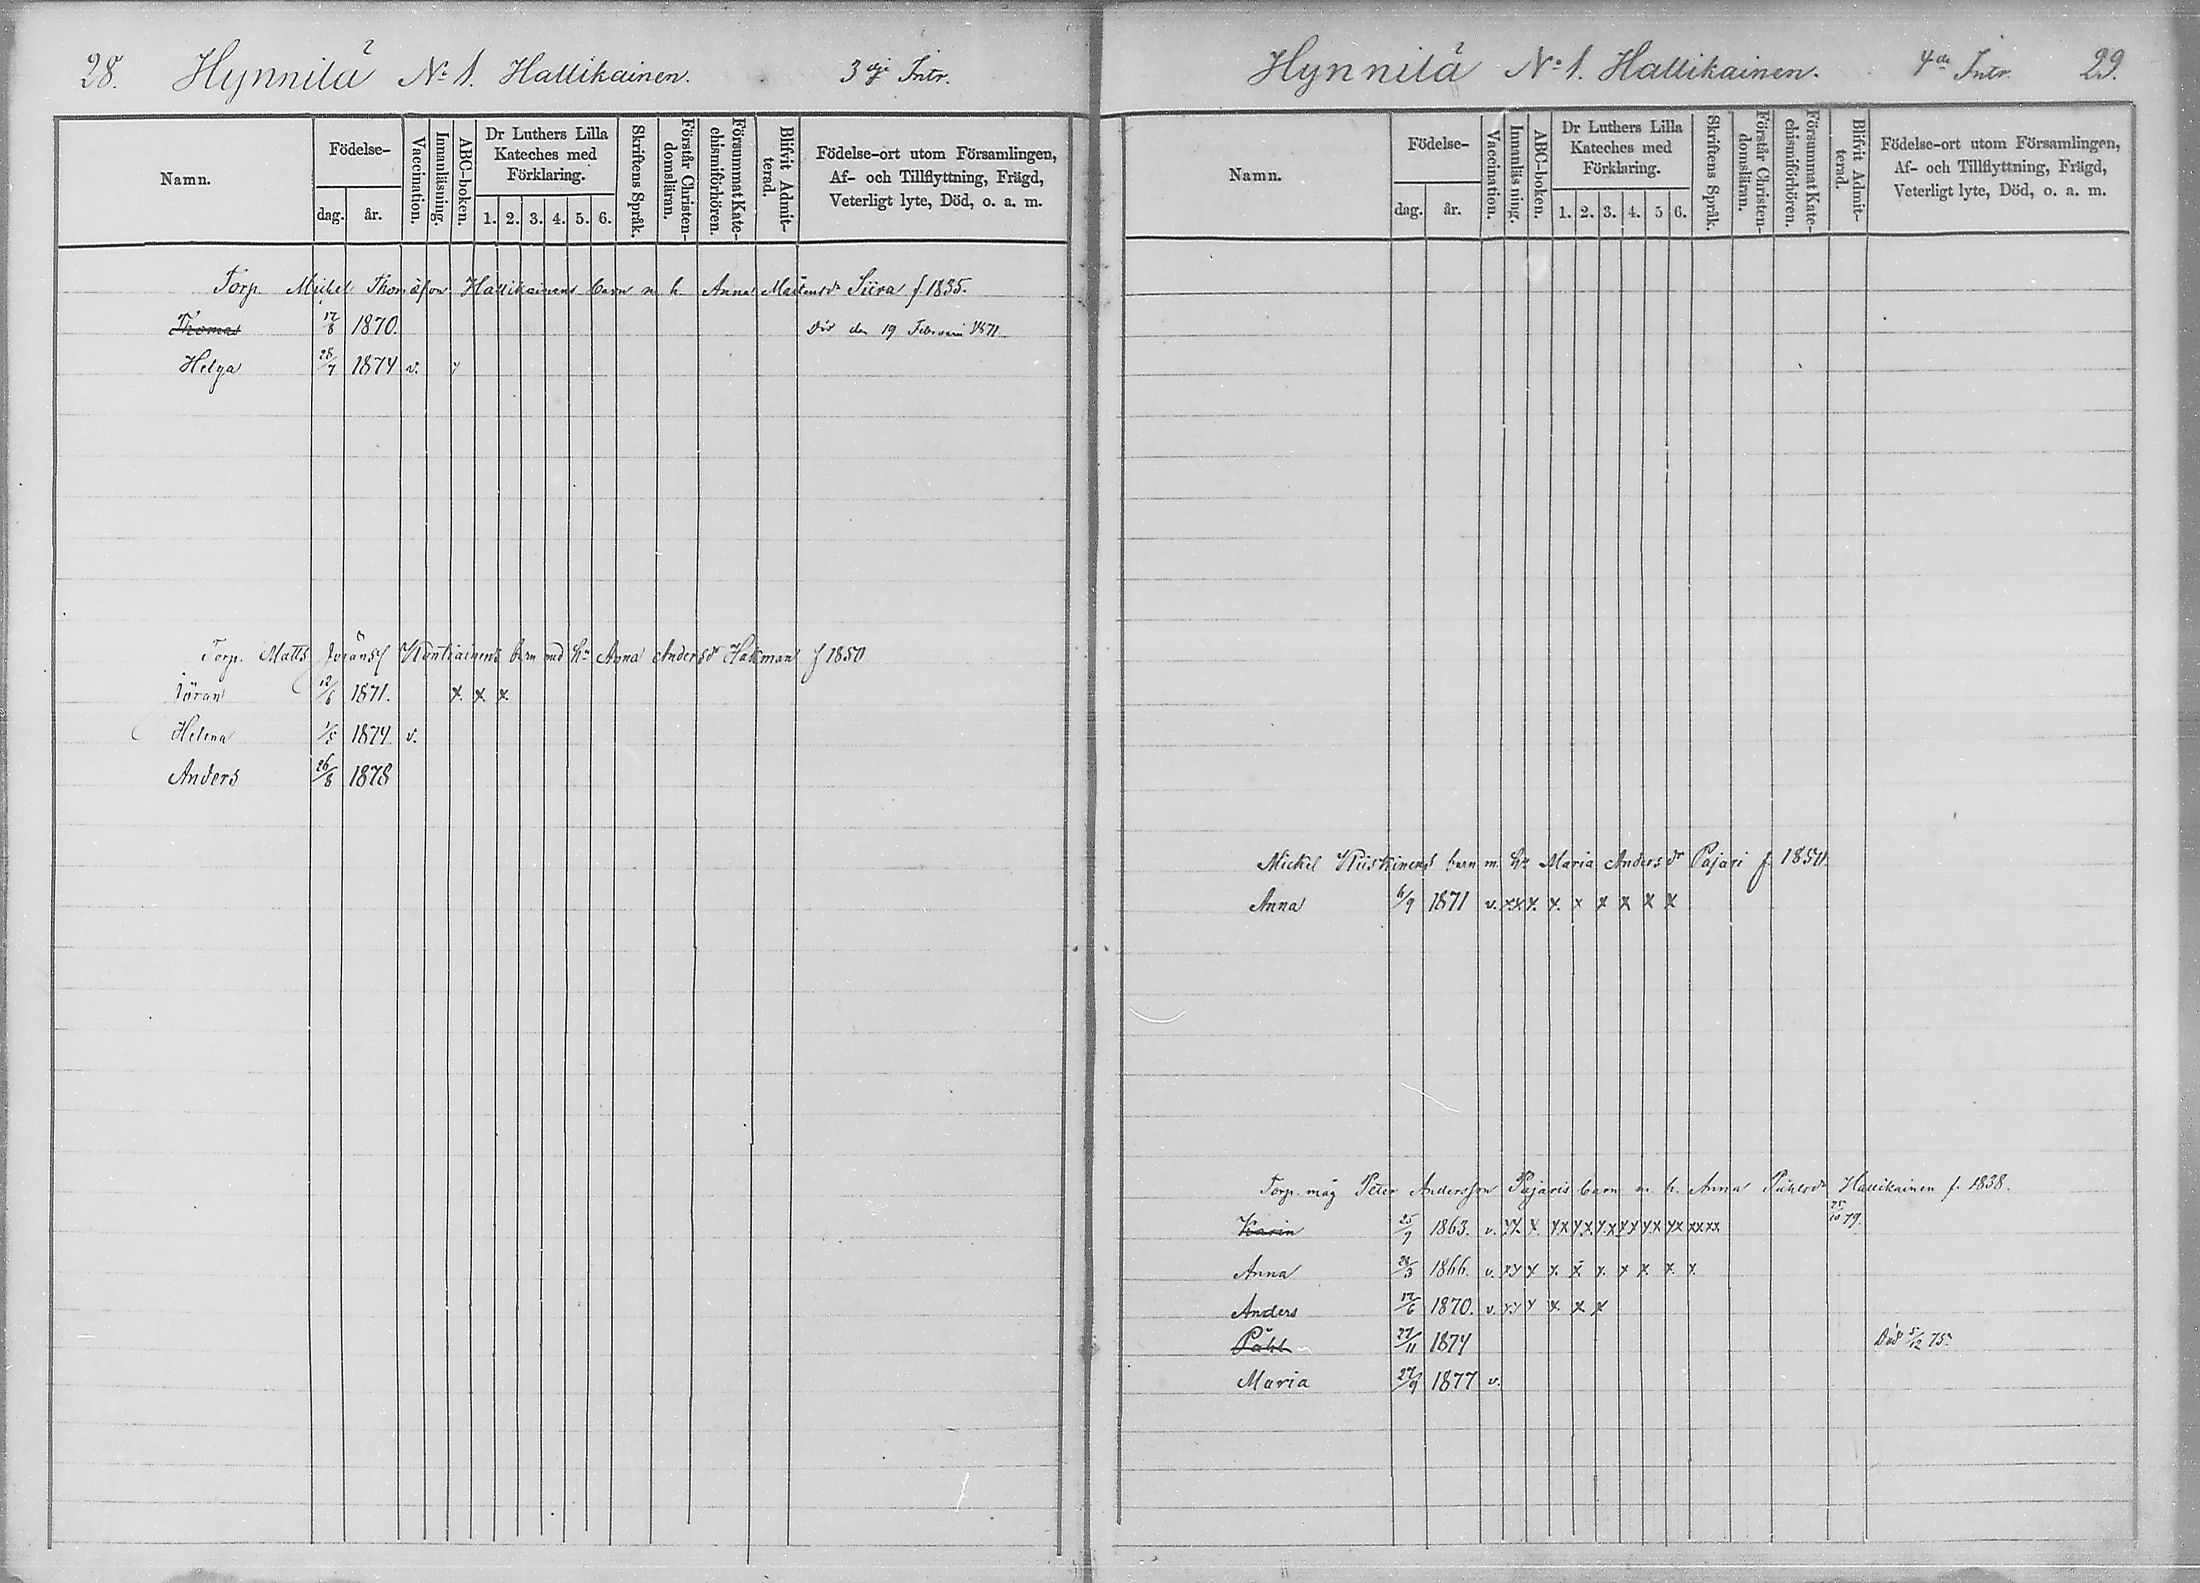 28. Hynnilä № 1. Hallikainen. 3dje Intr.
Namn.
Födelse-
dag. år.
Vaccination.
Innanläsning.
ABC-boken.
Dr Luthers Lilla Kateches med Förklaring.
1. 2. 3. 4. 5. 6.
Skriftens Språk.
Förstår Christendomsläran.
Försummat Katechismiförhören.
Blifvit Admitterad.
Födelse-ort utom Församlingen, Af- och Tillflyttning, Frägd, Veterligt lyte, Död, o. a. m.
Torp. Mickel Thomasson Hallikainens barn m h Anna Siira f 1835.
Thomas 17/8 1870. Död den 19 Februari 1871
Helga 28/7 1874 v. x
Torp. Matts Jöransf Kontiainens barn med hu Anna Andersdr Hakman f 1850
Jöran 12/6 1871. x. x x.
Helena 1/5 1874 v.
Anders 26/8 1878
Hynnilä № 1. Hallikainen. 4de Intr. 29.
Namn.
Födelse-
dag. år.
Vaccination.
Innanläsning.
ABC-boken.
Dr Luthers Lilla Kateches med Förklaring.
1. 2. 3. 4. 5 6.
Skriftens Språk.
Förstår Christendomsläran.
Försummat Katechismiförhören.
Blifvit Admitterad.
Födelse-ort utom Församlingen, Af- och Tillflyttning, Frägd, Veterligt lyte, Död, o. a. m.
Mickel Kiiskinens barn m. hu Maria Andersdr Pajari f. 1850
Anna 6/9 1871 v. xx x. x. x x x x x
Torp. måg Peter Andersson Pajaris barn m. h. Anna Påhlsdr Hallikainen f. 1838.
Karin 25/9 1863. v. xx. x. xx xx. x.x xx xx xx xxxx 25/10 79.
Anna 28/3 1866. v. xx x x. x x. x x. x. x.
Anders 17/6 1870. v. xx x x. x x
Påhl 27/11 1874 Död 5/12 75.
Maria 27/9 1877 v.